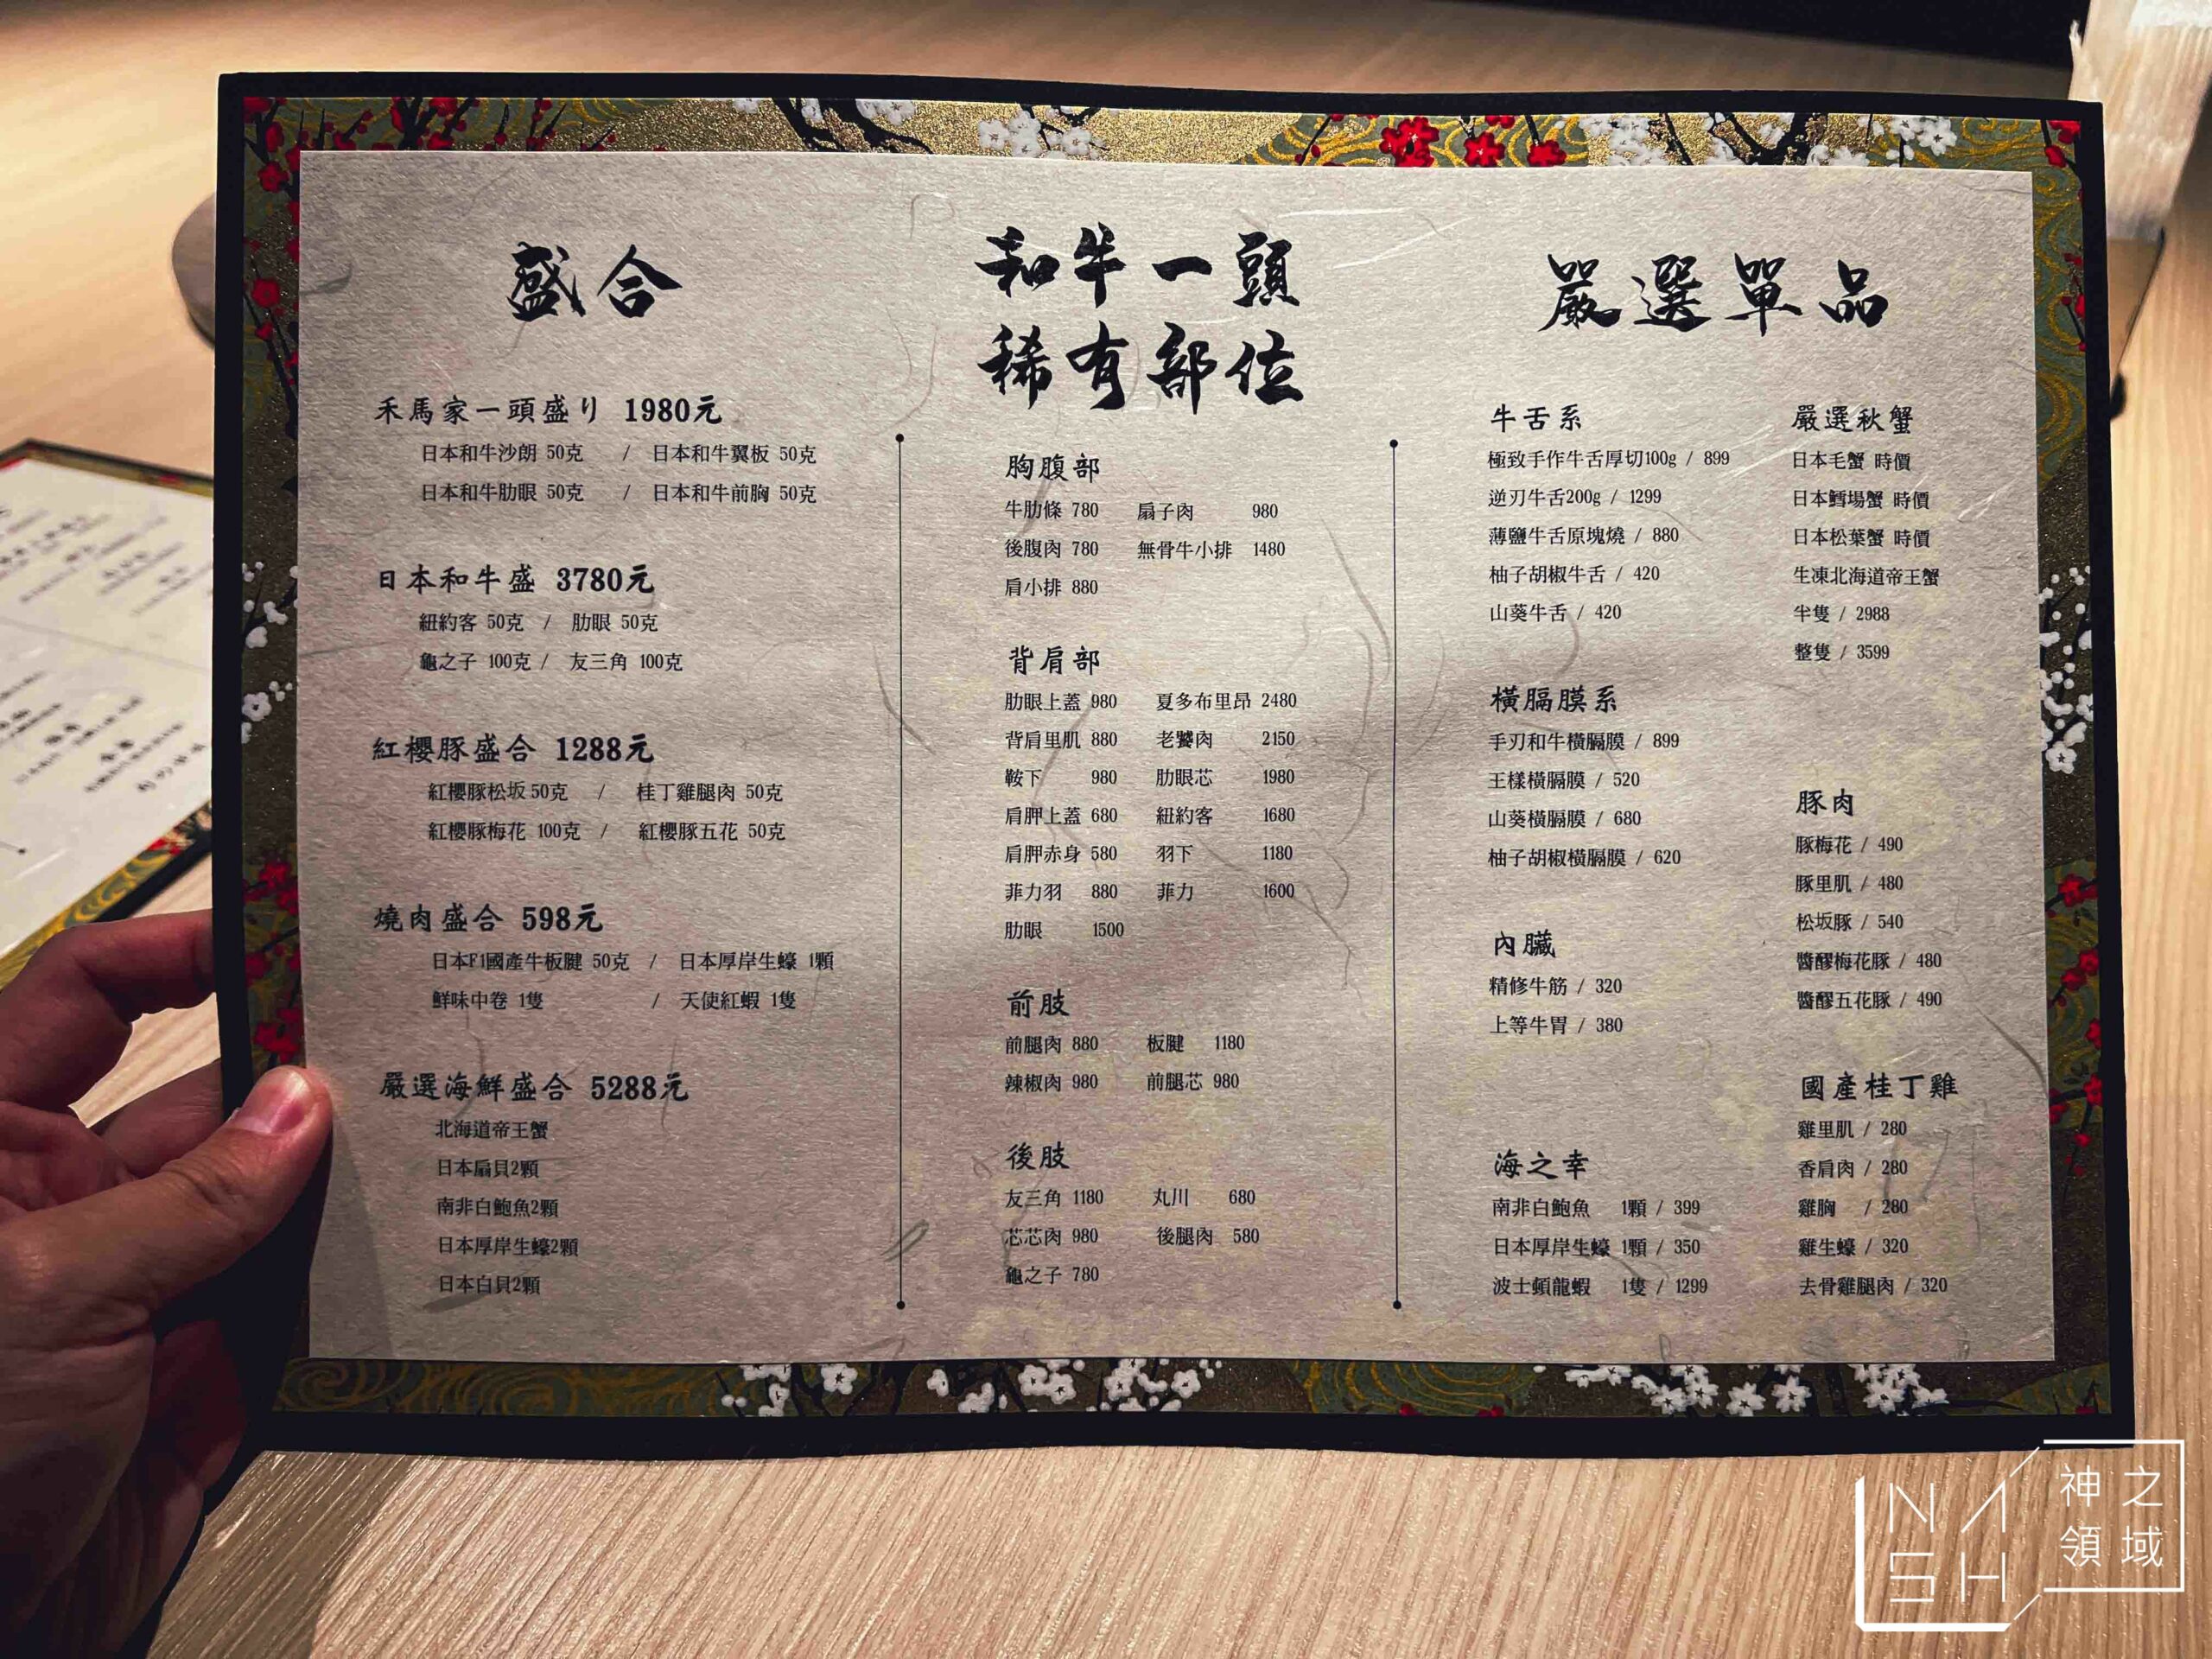 盛合
禾馬家一頭盛り 1980元
日本和牛沙朗 50克 / 日本和牛翼板 50克
日本和牛肋眼 50克 / 日本和牛前胸 50克
日本和牛盛 3780元
紐約客 50克 / 肋眼 50克
龜之子 100克 / 友三角 100克
紅櫻豚盛合 1288元
紅櫻豚松坂 50克 / 桂丁雞腿肉 50克
紅櫻豚梅花 100克 / 紅櫻豚五花 50克
燒肉盛合 598元
日本F1國產牛板腱 50克 / 日本厚岸生蠔 1顆
鮮味中卷 1隻 / 天使紅蝦 1隻
嚴選海鮮盛合 5288元
北海道帝王蟹
日本扇貝2顆
南非白鮑魚2顆
日本厚岸生蠔2顆
日本白貝2顆
和牛一頭
稀有部位
胸腹部
牛肋條 780 扇子肉 980
後腹肉 780 無骨牛小排 1480
肩小排 880
背肩部
肋眼上蓋 980 夏多布里昂 2480
背肩里肌 880 老饕肉 2150
鞍下 980 肋眼芯 1980
肩胛上蓋 680 紐約客 1680
肩胛赤身 580 羽下 1180
菲力羽 880 菲力 1600
肋眼 1500
前肢
前腿肉 880 板腱 1180
辣椒肉 980 前腿芯 980
後肢
友三角 1180 丸川 680
芯芯肉 980 後腿肉 580
龜之子 780
嚴選單品
牛舌系
極致手作牛舌厚切100g / 899
逆刃牛舌200g / 1299
薄鹽牛舌原塊燒 / 880
柚子胡椒牛舌 / 420
山葵牛舌 / 420
橫膈膜系
手刃和牛橫膈膜 / 899
王樣橫膈膜 / 520
山葵橫膈膜 / 680
柚子胡椒橫膈膜 / 620
內臟
精修牛筋 / 320
上等牛胃 / 380
海之幸
南非白鮑魚 1顆 / 399
日本厚岸生蠔 1顆 / 350
波士頓龍蝦 1隻 / 1299
嚴選秋蟹
日本毛蟹 時價
日本鱈場蟹 時價
日本松葉蟹 時價
生凍北海道帝王蟹
半隻 / 2988
整隻 / 3599
豚肉
豚梅花 / 490
豚里肌 / 480
松坂豚 / 540
醬醪梅花豚 / 480
醬醪五花豚 / 490
國產桂丁雞
雞里肌 / 280
香肩肉 / 280
雞胸 / 280
雞生蠔 / 320
去骨雞腿肉 / 320
NASH
神之
領域